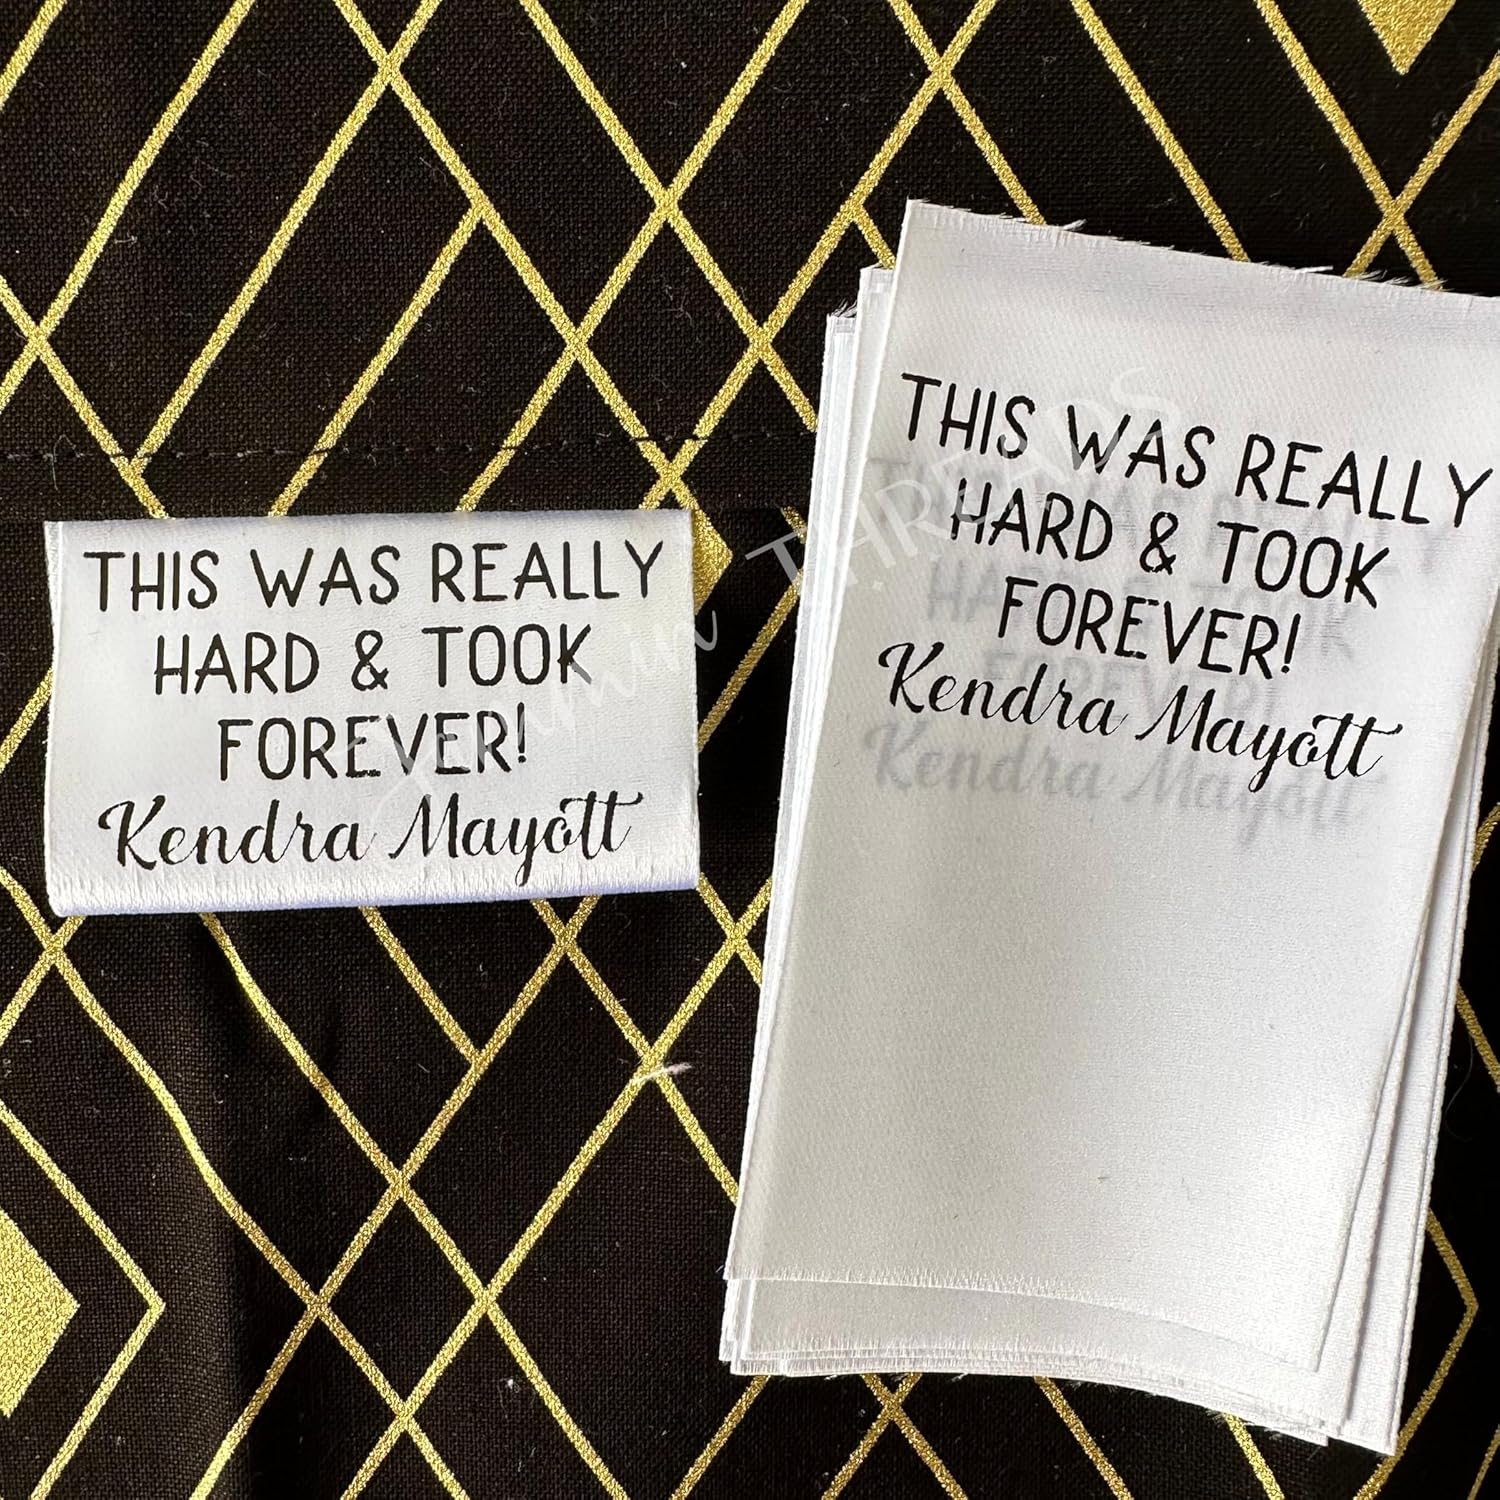 THIS WAS REALLY
HARD & TOOK
FOREVER!
Kendra Mayott
THIS WAS REALLY
HARD & TOOK
FOREVER!
Kendra Mayott
THREADS